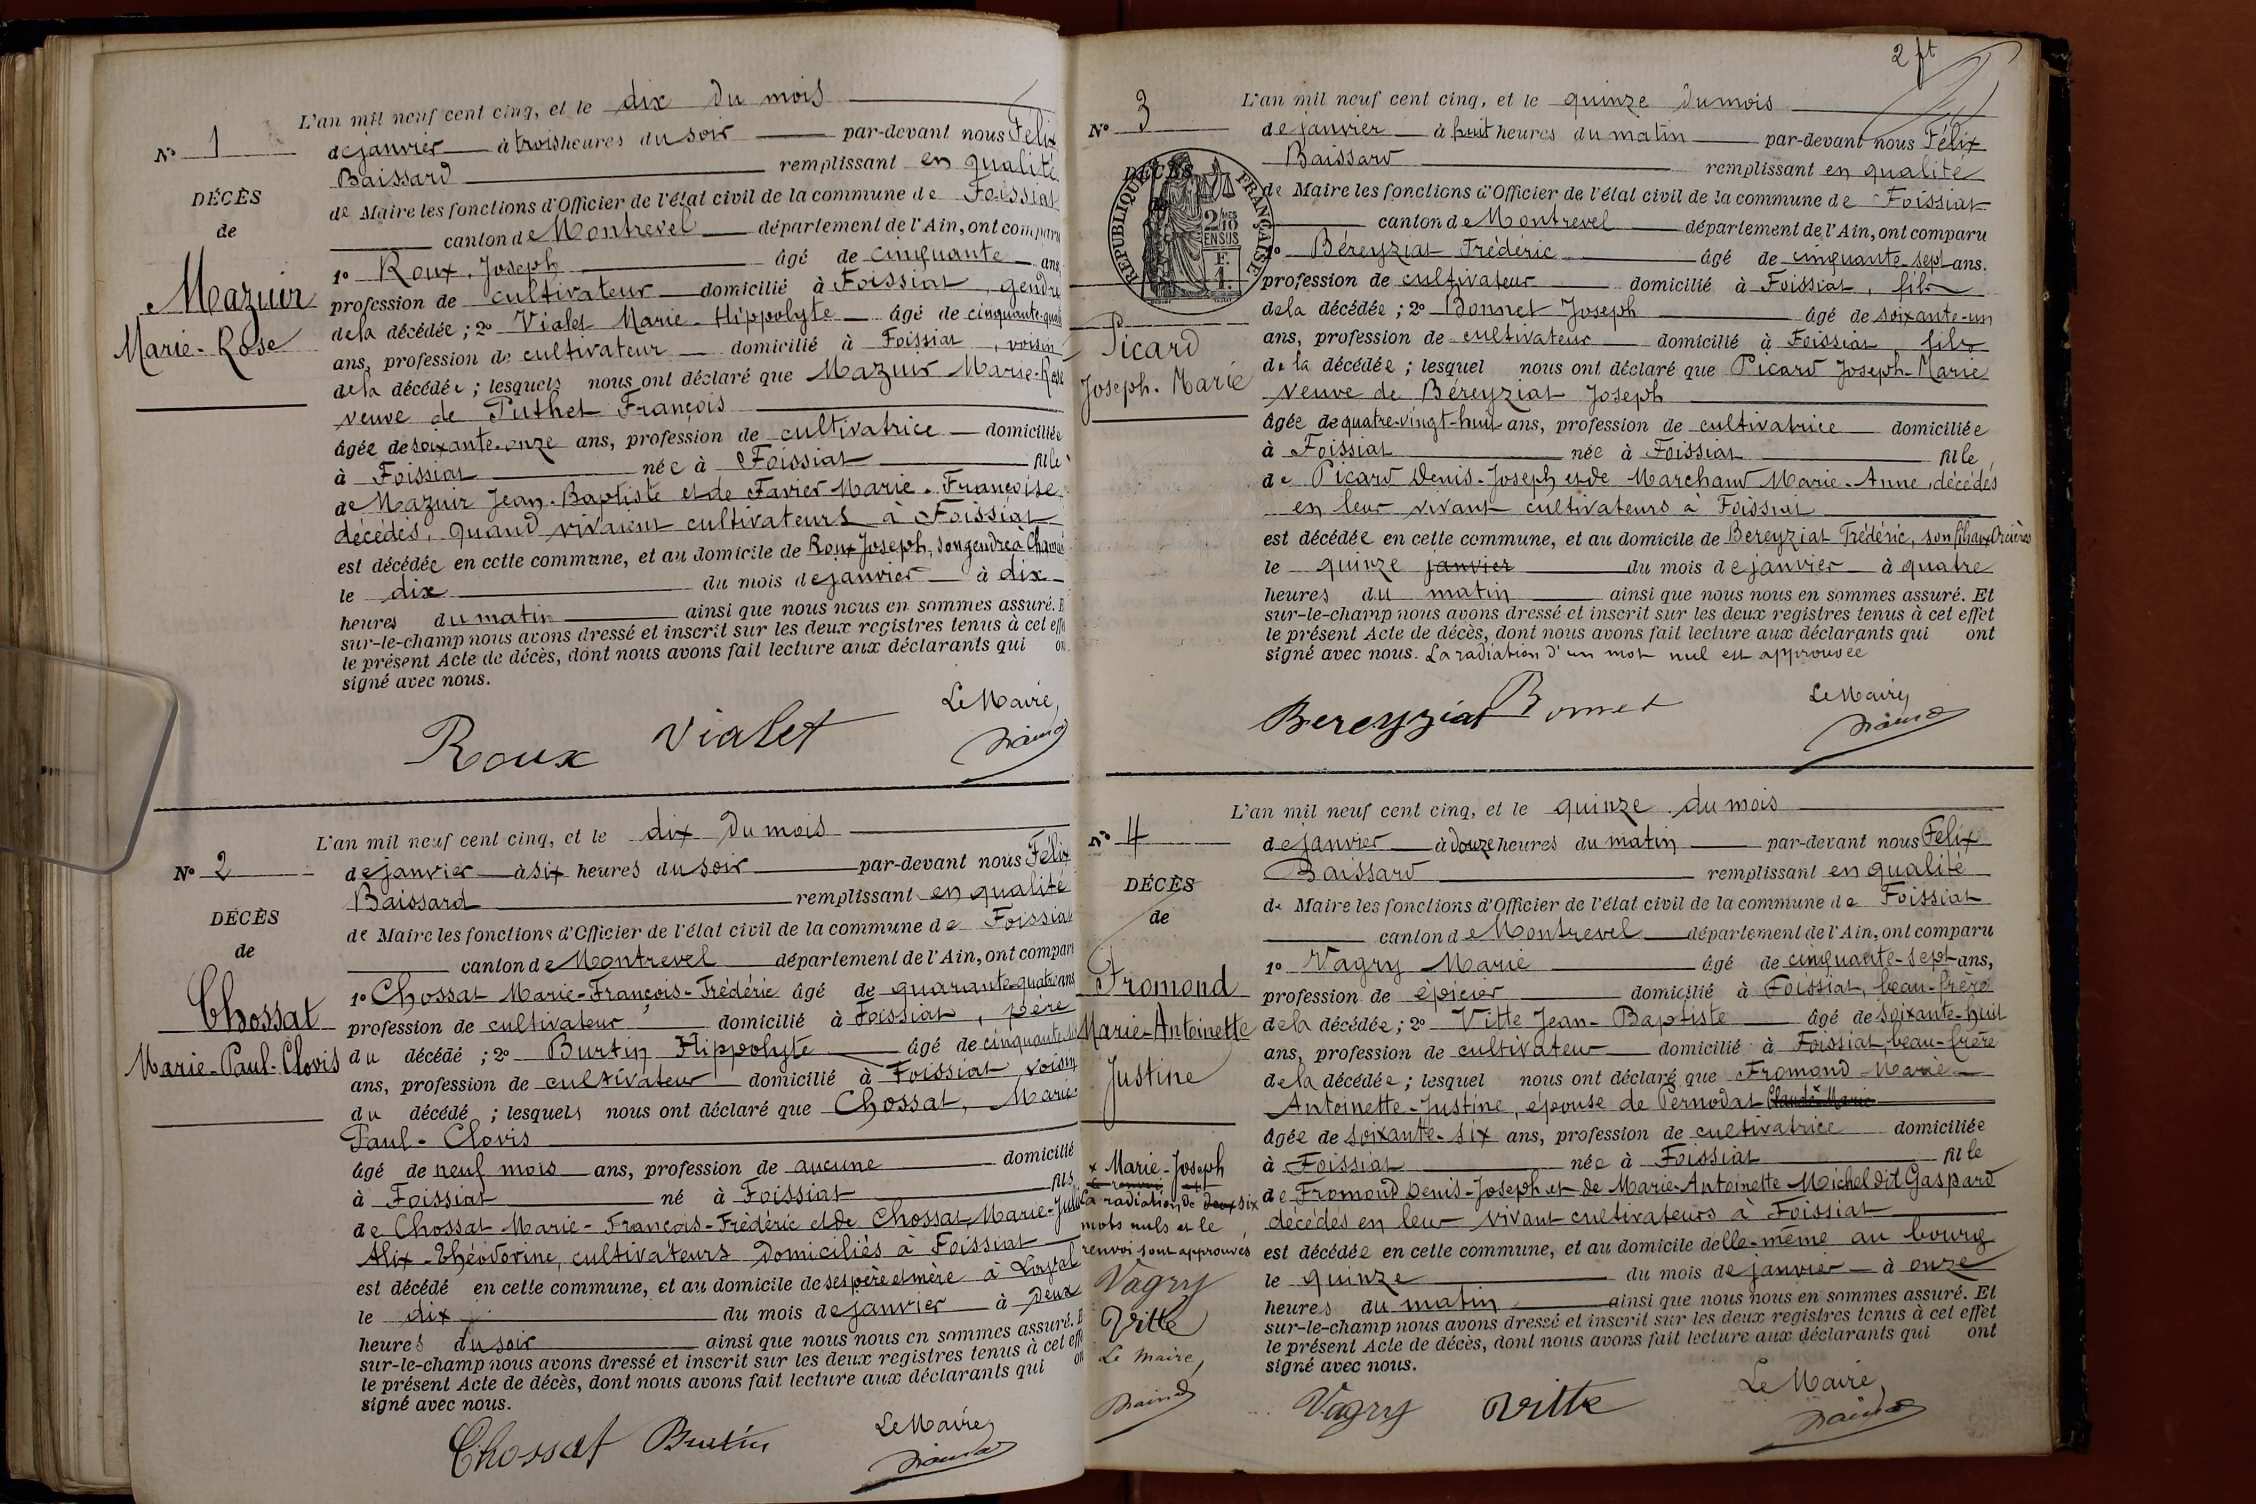 L'an mil neuf cent cinq, et le dix du mois
N° 1
de janvier à trois heures du soir par-devant nous Félix
Baissard remplissant en qualité
DÉCÈS
de Maire les fonctions d'Officier de l'état civil de la commune de Foissiat
de
canton de Montrevel département de l'Ain, ont comparu
1° Roux, Joseph âgé de cinquante ans,
Mazuir
profession de cultivateur domicilié à Foissiat, gendre
Marie-Rose
de la décédée ; 2° Vialet Marie-Hippolyte âgé de cinquante-quatre
ans, profession de cultivateur domicilié à Foissiat, voisin
de la décédée ; lesquels nous ont déclaré que Mazuir Marie-Rose
veuve de Puthet François
âgée de soixante-onze ans, profession de cultivatrice domiciliée
à Foissiat née à Foissiat fille
de Mazuir Jean-Baptiste et de Favier Marie-Françoise
décédés, quand vivaient cultivateurs à Foissiat
est décédée en cette commune, et au domicile de Roux Joseph, son gendre à
le dix du mois de janvier à dix
heures du matin ainsi que nous nous en sommes assuré. E
sur-le-champ nous avons dressé et inscrit sur les deux registres tenus à cet effet
le présent Acte de décès, dont nous avons fait lecture aux déclarants qui on
signé avec nous.
Le Maire,
Roux Vialet
L'an mil neuf cent cinq, et le dix du mois
N° 2
de janvier à six heures du soir par-devant nous Félix
Baissard remplissant en qualité
DÉCÈS
de Maire les fonctions d'Officier de l'état civil de la commune de Foissiat
de
canton de Montrevel département de l'Ain, ont comparu
1° Chossat Marie-François-Frédéric âgé de quarante-quatre ans
Chossat
profession de cultivateur domicilié à Foissiat, père
Marie-Paul-Clovis
du décédé ; 2° Burtin Hippolyte âgé de cinquante
ans, profession de cultivateur domicilié à Foissiat voisin
du décédé ; lesquels nous ont déclaré que Chossat, Marie
Paul-Clovis
âgé de neuf mois ans, profession de aucune domicilié
à Foissiat né à Foissiat fils
de Chossat Marie-François-Frédéric et de Chossat Marie-
Alix-Théodorine, cultivateurs domiciliés à Foissiat
est décédé en cette commune, et au domicile de ses père et mère à
le dix du mois de janvier à deux
heures du soir ainsi que nous nous en sommes assuré. E
sur-le-champ nous avons dressé et inscrit sur les deux registres tenus à cet effe
le présent Acte de décès, dont nous avons fait lecture aux déclarants qui on
signé avec nous.
Le Maire,
Chossat Burtin
2 ft
L'an mil neuf cent cinq, et le quinze du mois
N° 3
de janvier à huit heures du matin par-devant nous Félix
Baissard remplissant en qualité
DÉCÈS
de
RÉPUBLIQUE FRANÇAISE
2/10 EN SUS
F. 1.
de Maire les fonctions d'Officier de l'état civil de la commune de Foissiat
canton de Montrevel département de l'Ain, ont comparu
1° Béreyziat Frédéric âgé de cinquante-sept ans.
profession de cultivateur domicilié à Foissiat, fils
de la décédée ; 2° Bonnet Joseph âgé de soixante-un
Picard
ans, profession de cultivateur domicilié à Foissiat fils
Joseph-Marie
de la décédée ; lesquel nous ont déclaré que Picard Joseph-Marie
veuve de Béreyziat Joseph
âgée de quatre-vingt-huit ans, profession de cultivatrice domiciliée
à Foissiat née à Foissiat fille
de Picard Denis-Joseph et de Marchand Marie-Anne, décédés
en leur vivant cultivateurs à Foissiat
est décédée en cette commune, et au domicile de Bereyziat Frédéric, son fils aux Orcières
le quinze janvier du mois de janvier à quatre
heures du matin ainsi que nous nous en sommes assuré. Et
sur-le-champ nous avons dressé et inscrit sur les deux registres tenus à cet effet
le présent Acte de décès, dont nous avons fait lecture aux déclarants qui ont
signé avec nous. La radiation d'un mot nul est approuvée
Le Maire,
Bereyziat Bonnet
L'an mil neuf cent cinq, et le quinze du mois
N° 4
de janvier à douze heures du matin par-devant nous Félix
Baissard remplissant en qualité
DÉCÈS
de Maire les fonctions d'Officier de l'état civil de la commune de Foissiat
de
canton de Montrevel département de l'Ain, ont comparu
1° Vagry Marie âgé de cinquante-sept ans,
Fromond
profession de épicier domicilié à Foissiat, beau-frère
Marie-Antoinette
de la décédée ; 2° Vitte Jean-Baptiste âgé de soixante-huit
ans, profession de cultivateur domicilié à Foissiat, beau-frère
Justine
de la décédée ; lesquel nous ont déclaré que Fromond Marie
Antoinette-Justine, épouse de Pernodat Claude-Marie
âgée de soixante-six ans, profession de cultivatrice domiciliée
à Foissiat née à Foissiat fille
de Fromond Denis-Joseph et de Marie-Antoinette Michel dit Gaspard
décédés en leur vivant cultivateurs à Foissiat
est décédée en cette commune, et au domicile d'elle-même au bourg
le quinze du mois de janvier à onze
heures du matin ainsi que nous nous en sommes assuré. Et
sur-le-champ nous avons dressé et inscrit sur les deux registres tenus à cet effet
le présent Acte de décès, dont nous avons fait lecture aux déclarants qui ont
signé avec nous.
x Marie-Joseph
La radiation de deux six
mots nuls et le
renvoi sont approuvés
Vagry
Vitte
Le Maire,
Le Maire,
Vagry Vitte